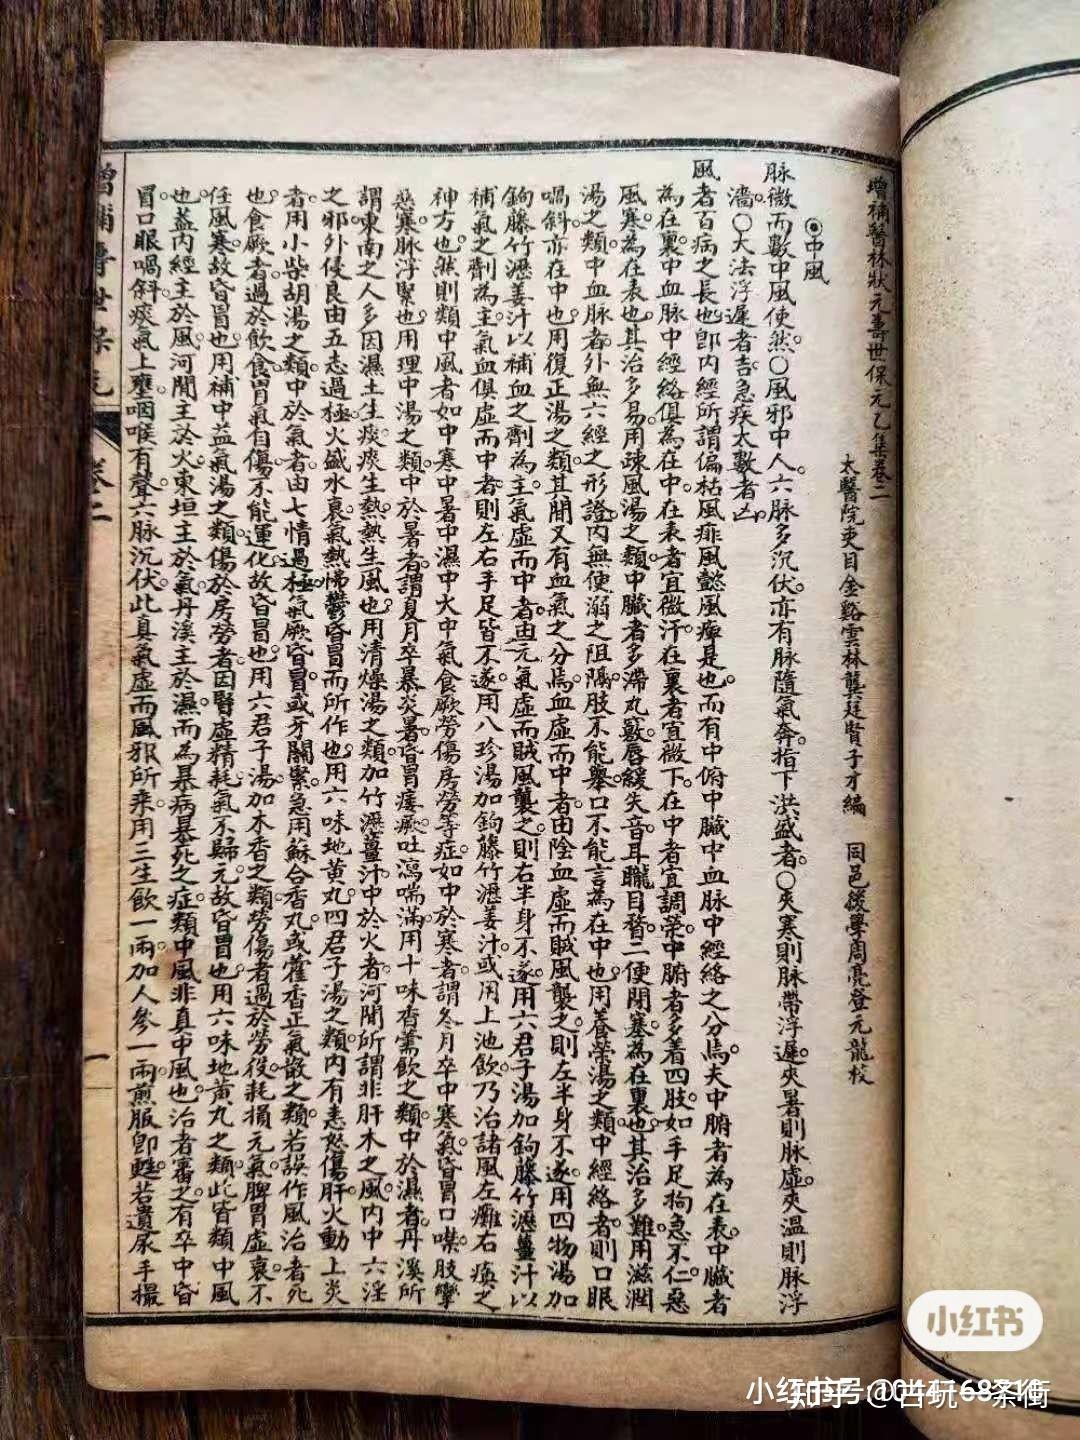 增補醫林狀元壽世保元乙集卷二
太醫院吏目金谿雲林龔廷賢子才編　同邑後學周亮登元龍校
◉中風
脉微而數中風使然。○風邪中人。六脉多沉伏。亦有脉隨氣奔。指下洪盛者。○夾寒則脉帶浮遲。夾暑則脉虛。夾溫則脉浮
濇。○大法浮遲者吉。急疾太數者凶。
風者百病之長也。卽內經所謂偏枯風痱風懿風痺是也。而有中腑中臟中血脉中經絡之分焉。夫中腑者為在表。中臟者
為在裏。中血脉中經絡俱為在中。在表者宜微汗。在裏者宜微下。在中者宜調榮。中腑者多着四肢。如手足拘急不仁。惡
風寒。為在表也。其治多易。用疎風湯之類。中臟者多滯九竅。唇緩失音。耳聾目瞀。二便閉塞。為在裏也。其治多難。用滋潤
湯之類。中血脉者。外無六經之形證。內無便溺之阻隔。肢不能舉。口不能言。為在中也。用養榮湯之類。中經絡者。則口眼
喎斜。亦在中也。用復正湯之類。其間又有血氣之分焉。血虛而中者。由陰血虛而賊風襲之。則左半身不遂。用四物湯加
鉤藤竹瀝姜汁。以補血之劑為主。氣虛而中者。由元氣虛而賊風襲之。則右半身不遂。用六君子湯加鉤藤竹瀝薑汁。以
補氣之劑為主。氣血俱虛而中者。則左右手足皆不遂。用八珍湯加鉤藤竹瀝姜汁。或用上池飲。乃治諸風左癱右瘓之
神方也。然則類中風者。如中寒中暑中濕中火中氣食厥勞傷房勞等症。如中於寒者。謂冬月卒中寒氣。昏冒口噤肢攣
惡寒。脉浮緊也。用理中湯之類。中於暑者。謂夏月卒暴炎暑。昏冒痿厥。吐瀉喘滿。用十味香薷飲之類。中於濕者。丹溪所
謂東南之人。多因濕土生痰。痰生熱。熱生風也。用清燥湯之類。加竹瀝薑汁。中於火者。河間所謂非肝木之風內中六淫
之邪外侵。良由五志過極。火盛水衰。氣熱怫鬱。昏冒而所作也。用六味地黃丸四君子湯之類。內有恚怒傷肝。火動上炎
者。用小柴胡湯之類。中於氣者。由七情過極。氣厥昏冒。或牙關緊急。用蘇合香丸。或藿香正氣散之類。若誤作風治者死
也。食厥者。過於飲食。胃氣自傷。不能運化。故昏冒也。用六君子湯加木香之類。勞傷者。過於勞役。耗損元氣。脾胃虛衰。不
任風寒。故昏冒也。用補中益氣湯之類。傷於房勞者。因腎虛精耗。氣不歸元。故昏冒也。用六味地黃丸之類。此皆類中風
也。蓋內經主於風。河間主於火。東垣主於氣。丹溪主於濕。而為暴病暴死之症。類中風非真中風也。治者審之。有卒中昏
冒。口眼喎斜。痰氣上壅。咽喉有聲。六脉沉伏。此真氣虛而風邪所乘。用三生飲一兩。加人參一兩。煎服卽甦。若遺尿手撮
增補壽世保元　卷二　一
小红书
小红书号
知乎 @古玩一条街